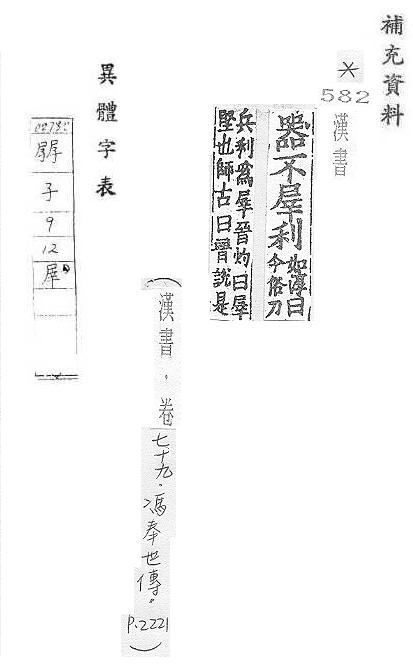 補充資料
*
582
漢書
器不犀利如淳曰
今俗刀
兵利為犀晉灼曰犀
堅也師古曰晉說是
(漢書·卷七十九·馮奉世傳。P.2221)
異體字表
子
9
12